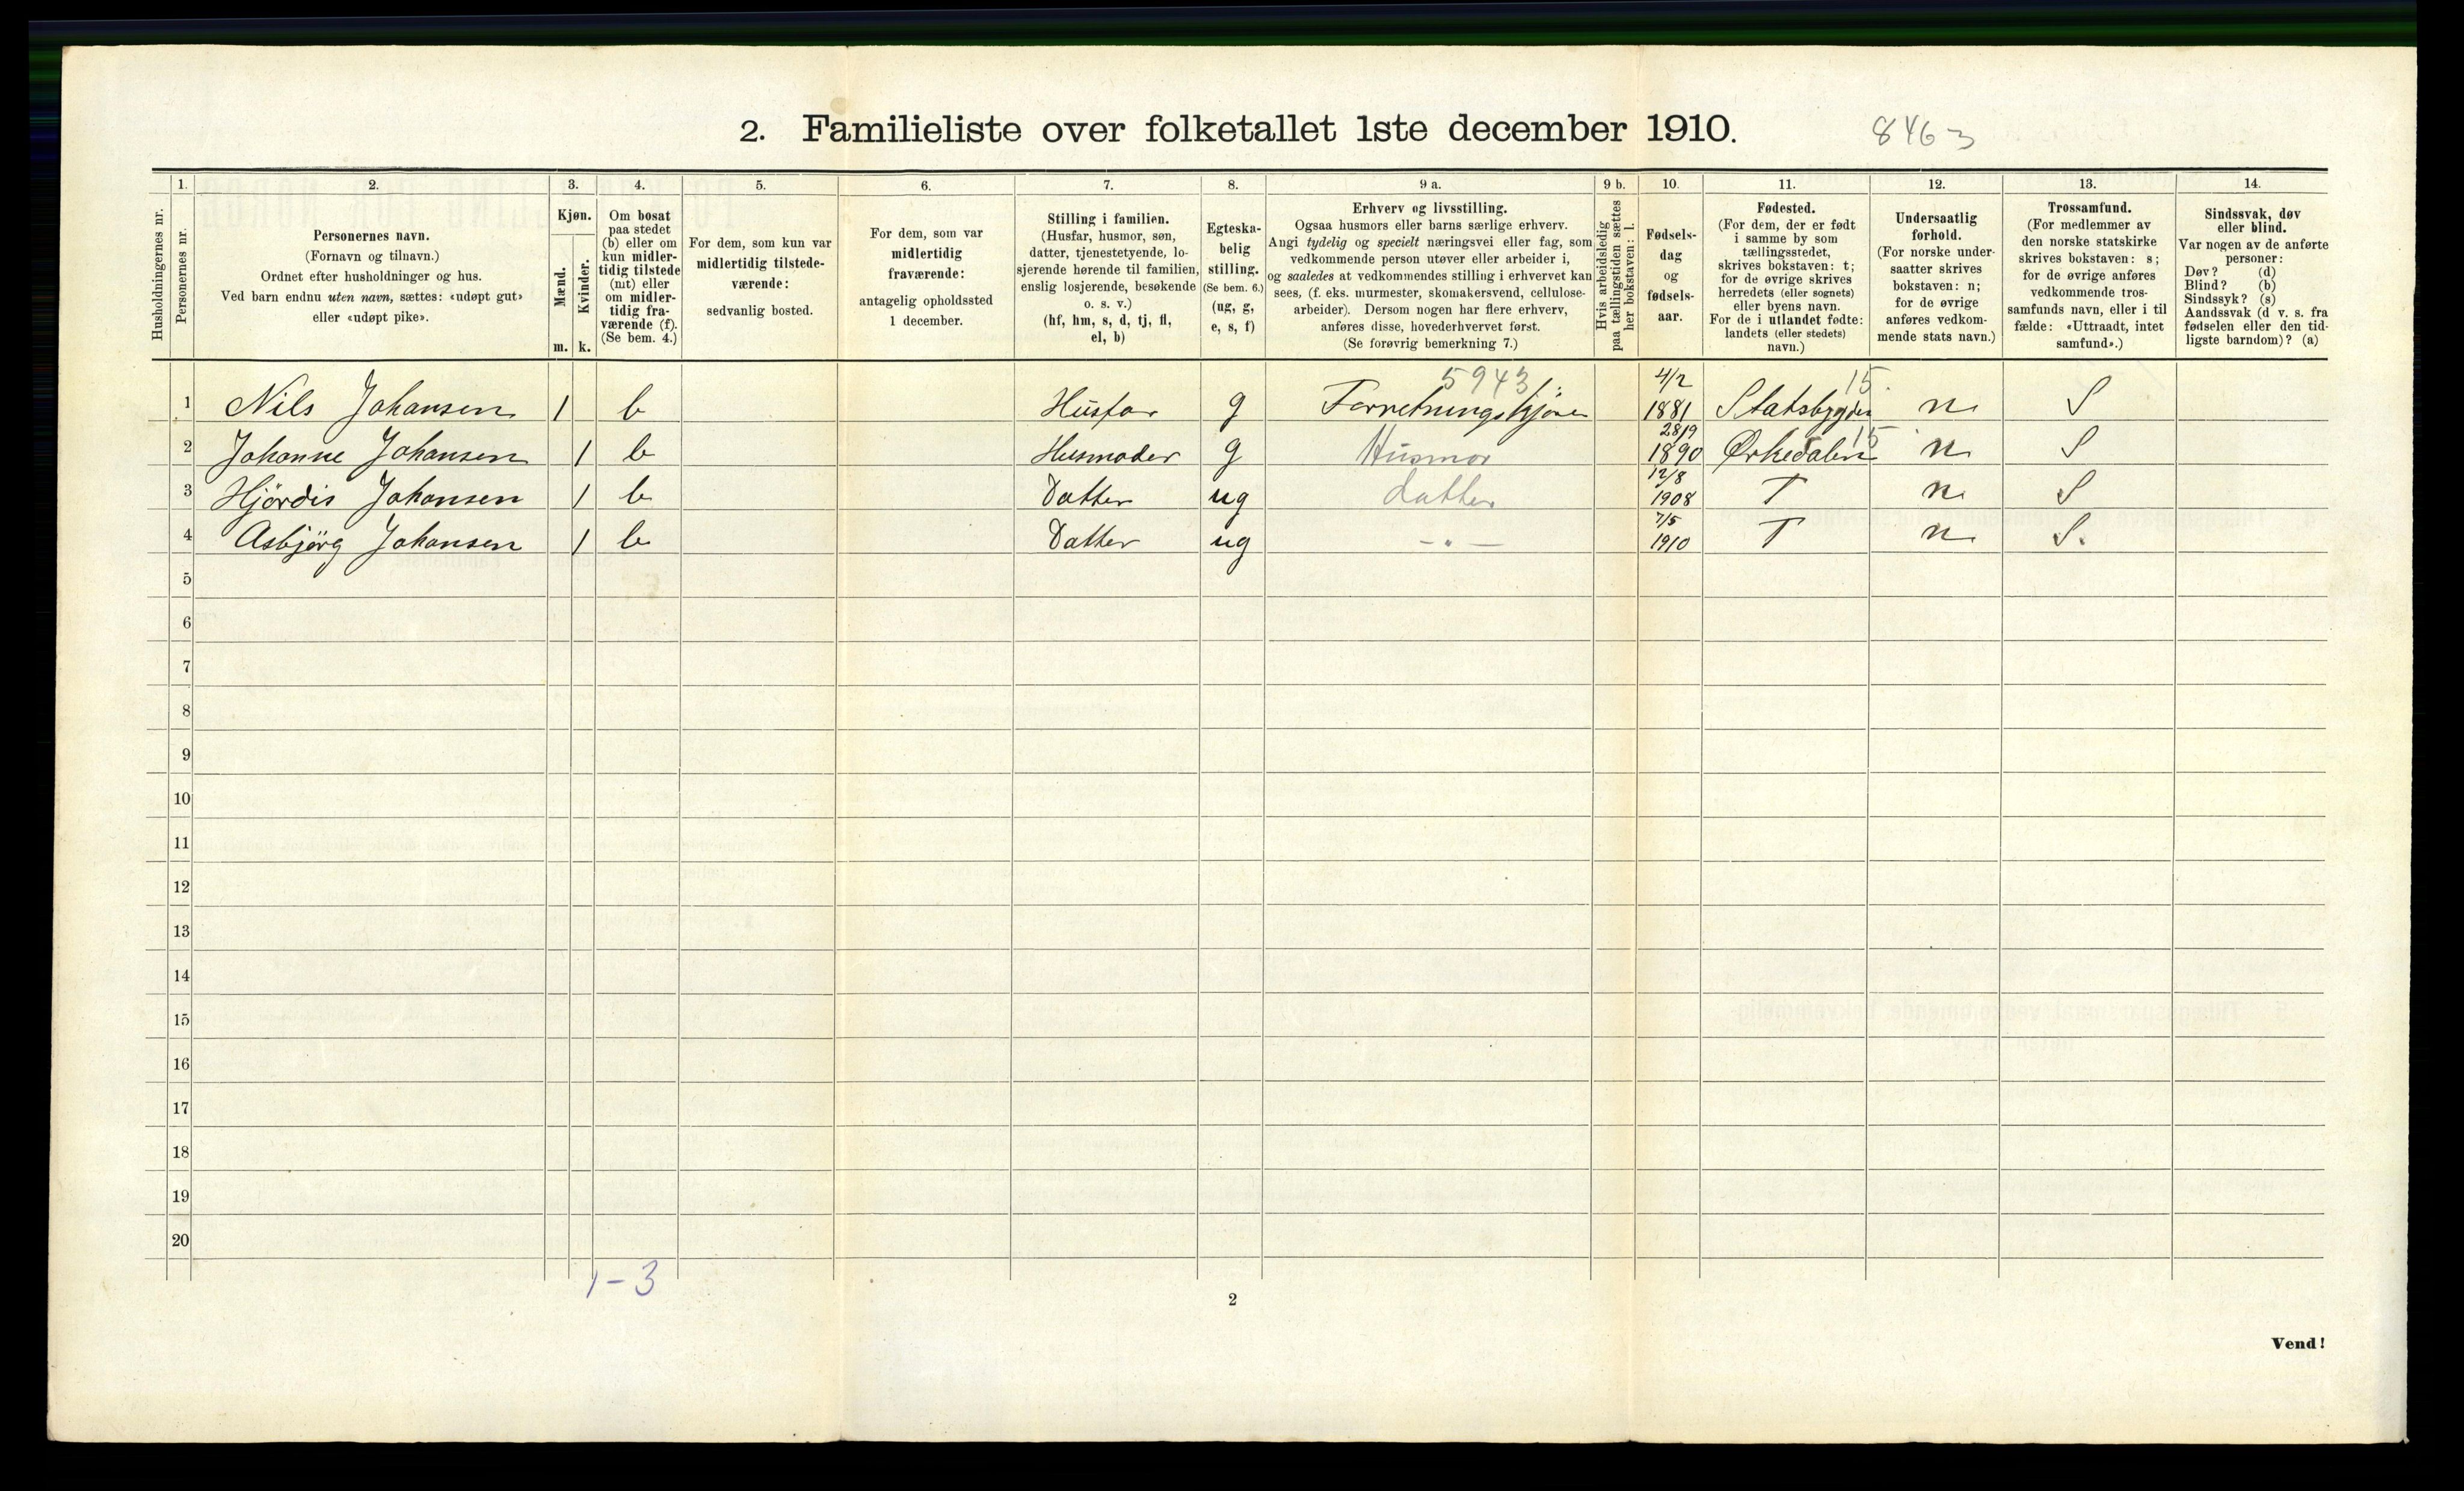 2. Familieliste over folketallet 1ste december 1910.
8463
Husholdningernes nr.
1.
Personernes nr.
2.
Personernes navn.
(Fornavn og tilnavn.)
Ordnet efter husholdninger og hus.
Ved barn endnu uten navn, sættes: «udøpt gut»
eller «udøpt pike».
3.
Kjøn.
Mænd.
Kvinder.
m.
k.
4.
Om bosat
paa stedet
(b) eller om
kun midler-
tidig tilstede
(mt) eller
om midler-
tidig fra-
værende (f).
(Se bem. 4.)
5.
For dem, som kun var
midlertidig tilstede-
værende:
sedvanlig bosted.
6.
For dem, som var
midlertidig
fraværende:
antagelig opholdssted
1 december.
7.
Stilling i familien.
(Husfar, husmor, søn,
datter, tjenestetyende, lo-
sjerende hørende til familien,
enslig losjerende, besøkende
o. s. v.)
(hf, hm, s, d, tj, fl,
el, b)
8.
Egteska-
belig
stilling.
(Se bem. 6.)
(ug, g,
e, s, f)
9 a.
Erhverv og livsstilling.
Ogsaa husmors eller barns særlige erhverv.
Angi tydelig og specielt næringsvei eller fag, som
vedkommende person utøver eller arbeider i,
og saaledes at vedkommendes stilling i erhvervet kan
sees, (f. eks. murmester, skomakersvend, cellulose-
arbeider). Dersom nogen har flere erhverv,
anføres disse, hovederhvervet først.
(Se forøvrig bemerkning 7.)
9 b.
Hvis arbeidsledig
paa tællingstiden sættes
her bokstaven: l.
10.
Fødsels-
dag
og
fødsels-
aar.
11.
Fødested.
(For dem, der er født
i samme by som
tællingsstedet,
skrives bokstaven: t;
for de øvrige skrives
herredets (eller sognets)
eller byens navn.
For de i utlandet fødte:
landets (eller stedets)
navn.)
12.
Undersaatlig
forhold.
(For norske under-
saatter skrives
bokstaven: n;
for de øvrige
anføres vedkom-
mende stats navn.)
13.
Trossamfund.
(For medlemmer av
den norske statskirke
skrives bokstaven: s;
for de øvrige anføres
vedkommende tros-
samfunds navn, eller i til
fælde: «Uttraadt, intet
samfund».)
14.
Sindssvak, døv
eller blind.
Var nogen av de anførte
personer:
Døv? (d)
Blind? (b)
Sindssyk? (s)
Aandssvak (d v. s. fra
fødselen eller den tid-
ligste barndom)? (a)
5943 4/2 15.
1 Nils Johansen 1 b Husfar g 1881 Statsbygden n S
28/9 15
2 Johanne Johansen 1 b Husmoder g Husmor 1890 Ørkedalen n S
12/8
3 Hjördis Johansen 1 b Datter ug datter 1908 T n S
7/5
4 Asbjörg Johansen 1 b Datter ug - " - 1910 T n S.
5
6
7
8
9
10
11
12
13
14
15
16
17
18
19
20
1-3
2
Vend!